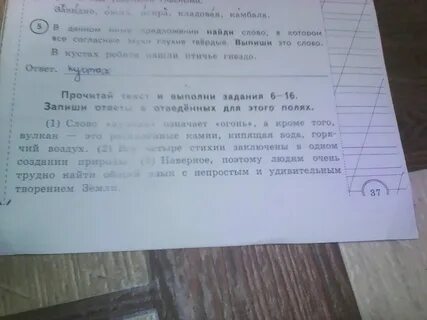 Завидно, искра, кладовая, камбала.
5 В данном ниже предложении найди слово, в котором
все согласные звуки глухие твёрдые. Выпиши это слово.
В кустах ребята нашли птичье гнездо.
Ответ. кустах
Прочитай текст и выполни задания 6–16.
Запиши ответы в отведённых для этого полях.
(1) Слово означает «огонь», а кроме того,
вулкан — это камни, кипящая вода, горя-
чий воздух. (2) Все четыре стихии заключены в одном
создании природы. (3) Наверное, поэтому людям очень
трудно найти общий язык с непростым и удивительным
творением Земли.
37